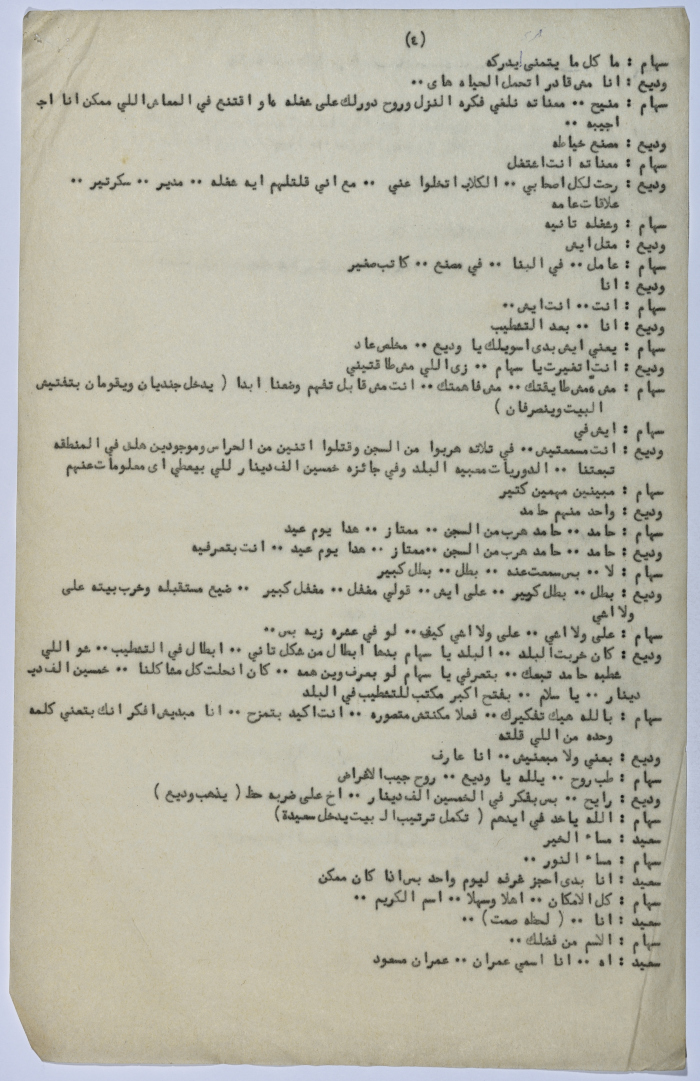 (٤)
سهام : ما كل ما يتمنى يدركه
وديع : انا مش قادر اتحمل الحياه هاى ..
سهام : منيح .. معناته نلغي فكره النزل وروح دورلك على شغله ما و اقتنع في المعاش اللي ممكن انا اجـ
اجيبه ..
وديع : مصنع خياطه
سهام : معناته انت اشتغل
وديع : رحت لكل اصحابي .. الكلاب اتخلوا عني .. مع اني قلتلهم ايه شغله .. مدير .. سكرتير ..
علاقات عامه
سهام : وشغله تانيه
وديع : متل ايش
سهام : عامل .. في البنا .. في مصنع .. كاتب صغير
وديع : انا
سهام : انت .. انت ايش ..
وديع : انا .. بعد التشطيب
سهام : يعني ايش بدى اسويلك يا وديع .. مخلص عاد
وديع : انت اتغيرت يا سهام .. زى اللي مش طاقتيني
سهام : مش مش طايقتك .. مش فاهمتك .. انت مش قابل تفهم وضعنا ابدا ( يدخل جنديان ويقومان بتفتيش
البيت وينصرفان )
سهام : ايش في
وديع : انت مسمعتيش .. في تلاته هربوا من السجن وقتلوا اتنين من الحراس وموجودين هلق في المنطقه
تبعتنا .. الدوريات معبيه البلد وفي جائزه خمسين الف دينار للي بيعطي اى معلومات عنهم
سهام : مبينين مهمين كتير
وديع : واحد منهم حامد
سهام : حامد .. حامد هرب من السجن .. ممتاز .. هدا يوم عيد
وديع : حامد .. حامد هرب من السجن ..ممتاز .. هدا يوم عيد .. انت بتعرفيه
سهام : لا .. بس سمعت عنه .. بطل .. بطل كبير
وديع : بطل .. بطل كبير .. على ايش .. قولي مغفل .. مغفل كبير .. ضيع مستقبله وخرب بيته على
ولا اشي
سهام : على ولا اشي .. على ولا اشي كيف .. لو في عشره زيه بس ..
وديع : كان خربت البلد .. البلد يا سهام بدها ابطال من شكل تاني .. ابطال في التشطيب .. شو اللي
شطبه حامد تبعك .. بتعرفي يا سهام لو بعرف وين همه .. كان انحلت كل مشاكلنا .. خمسين الف ديـ
دينار .. يا سلام .. بفتح اكبر مكتب للتشطيب في البلد
سهام : بالله هيك تفكيرك .. فعلا مكنتش متصوره .. انت اكيد بتمزح .. انا مبديش افكر انك بتعني كلمه
وحده من اللي قلته
وديع : بعني ولا مبعنيش .. انا عارف
سهام : طب روح .. يلله يا وديع .. روح جيب الاغراض
وديع : رايح .. بس بفكر في الخمسين الف دينار .. اخ على ضربه حظ ( يذهب وديع )
سهام : الله ياخد في ايدهم ( تكمل ترتيب الـ بيت يدخل سعيدة )
سعيد : مساء الخير
سهام : مساء النور ..
سعيد : انا بدى احجز غرفه ليوم واحد بس اذا كان ممكن
سهام : كل الامكان .. اهلا وسهلا .. اسم الكريم ..
سعيد : انا .. ( لحظه صمت ) ..
سهام : الاسم من فضلك ..
سعيد : اه .. انا اسمي عمران .. عمران مسعود